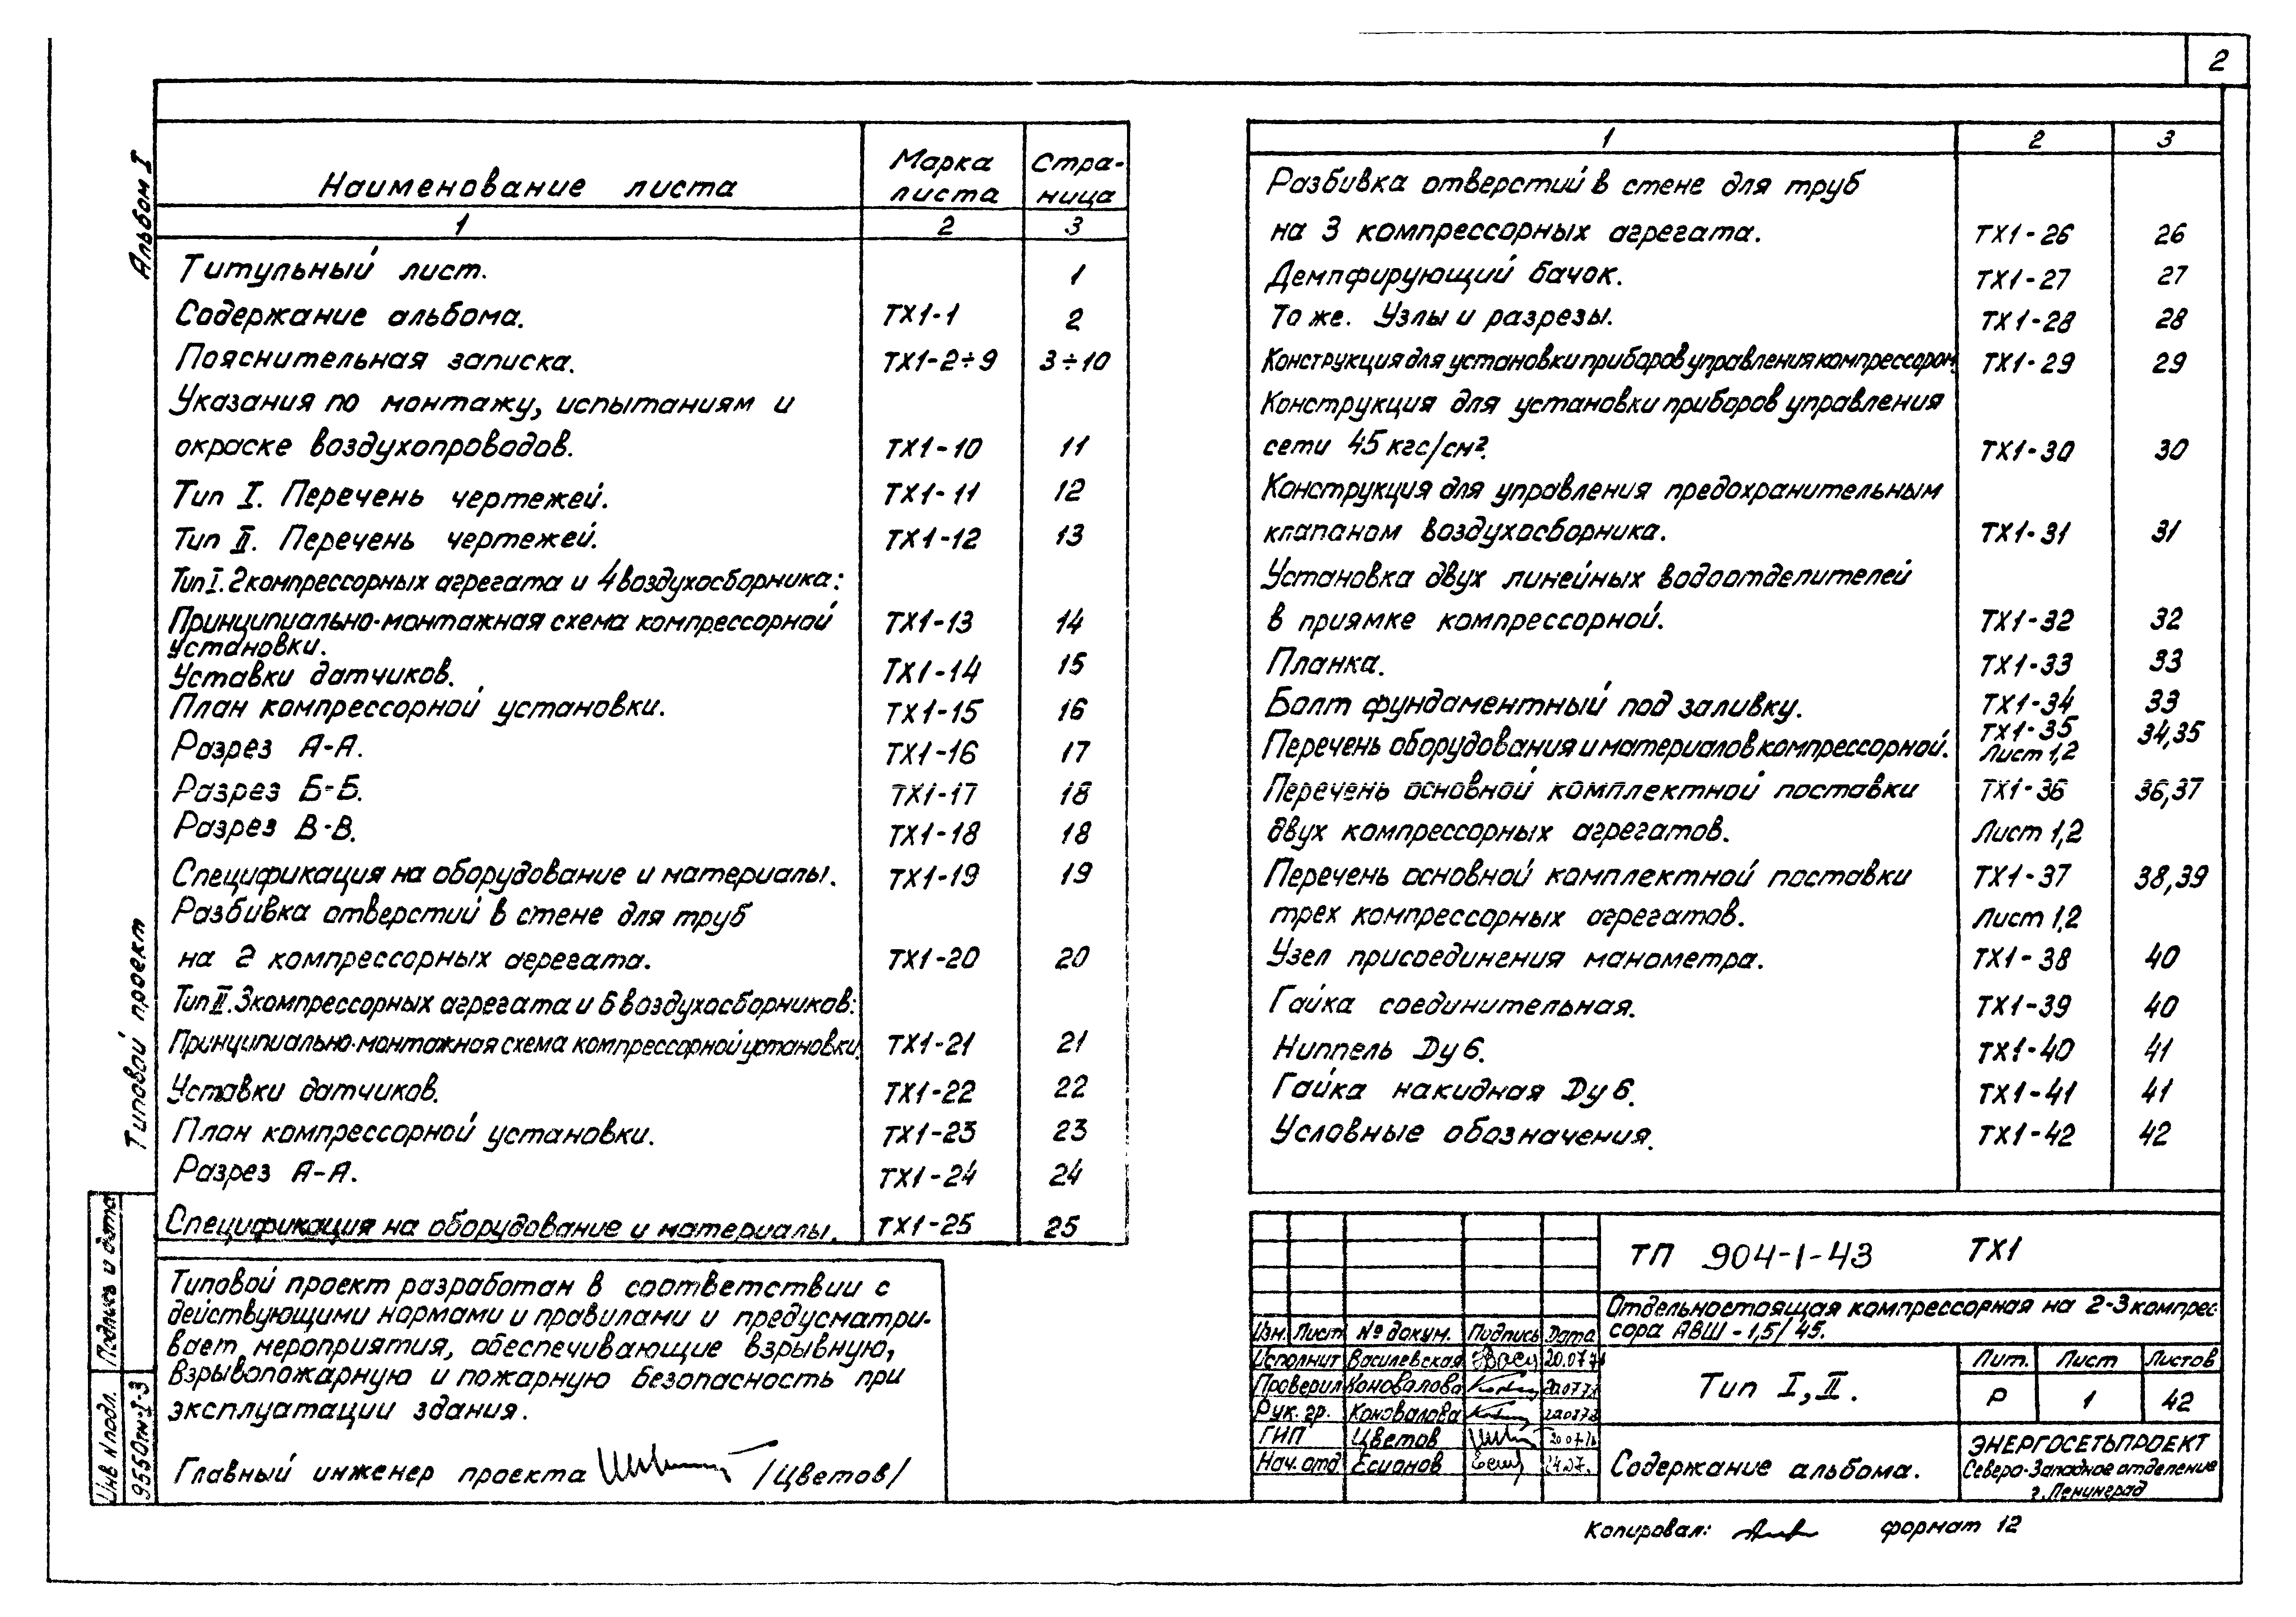 2
Альбом I
Типовой проект
Наименование листа
Марка листа
Стра-ница
1 2 3
Титульный лист. 1
Содержание альбома. ТХ1-1 2
Пояснительная записка. ТХ1-2÷9 3÷10
Указания по монтажу, испытаниям и
окраске воздухопроводов. ТХ1-10 11
Тип I. Перечень чертежей. ТХ1-11 12
Тип II. Перечень чертежей. ТХ1-12 13
Тип I. 2 компрессорных агрегата и 4 воздухосборника:
Принципиально-монтажная схема компрессорной ТХ1-13 14
установки.
Уставки датчиков. ТХ1-14 15
План компрессорной установки. ТХ1-15 16
Разрез А-А. ТХ1-16 17
Разрез Б-Б. ТХ1-17 18
Разрез В-В. ТХ1-18 18
Спецификация на оборудование и материалы. ТХ1-19 19
Разбивка отверстий в стене для труб
на 2 компрессорных агрегата. ТХ1-20 20
Тип II. 3 компрессорных агрегата и 6 воздухосборников:
Принципиально-монтажная схема компрессорной установки. ТХ1-21 21
Уставки датчиков. ТХ1-22 22
План компрессорной установки. ТХ1-23 23
Разрез А-А. ТХ1-24 24
Спецификация на оборудование и материалы. ТХ1-25 25
1 2 3
Разбивка отверстий в стене для труб
на 3 компрессорных агрегата. ТХ1-26 26
Демпфирующий бачок. ТХ1-27 27
То же. Узлы и разрезы. ТХ1-28 28
Конструкция для установки приборов управления компрессором. ТХ1-29 29
Конструкция для установки приборов управления
сети 45 кгс/см². ТХ1-30 30
Конструкция для управления предохранительным
клапаном воздухосборника. ТХ1-31 31
Установка двух линейных водоотделителей
в приямке компрессорной. ТХ1-32 32
Планка. ТХ1-33 33
Болт фундаментный под заливку. ТХ1-34 33
Перечень оборудования и материалов компрессорной. ТХ1-35 Лист 1,2 34,35
Перечень основной комплектной поставки ТХ1-36 36,37
двух компрессорных агрегатов. Лист 1,2
Перечень основной комплектной поставки ТХ1-37 38,39
трех компрессорных агрегатов. Лист 1,2
Узел присоединения манометра. ТХ1-38 40
Гайка соединительная. ТХ1-39 40
Ниппель Ду 6. ТХ1-40 41
Гайка накидная Ду 6. ТХ1-41 41
Условные обозначения. ТХ1-42 42
Типовой проект разработан в соответствии с
действующими нормами и правилами и предусматри-
вает мероприятия, обеспечивающие взрывную,
взрывопожарную и пожарную безопасность при
эксплуатации здания.
Главный инженер проекта /Цветов/
Подпись и дата
Инв N подл.
9550тм-I-3
ТП 904-1-43 ТХ1
Отдельностоящая компрессорная на 2-3 компрес-
сора АВШ-1,5/45.
Изм. Лист № докум. Подпись Дата
Исполнит Василевская 20.07.7
Проверил Коновалова 20.07.7
Рук. гр. Коновалова 20.07.7
ГИП Цветов 20.07.7
Нач. отд Есионов 24.07.
Тип I, II.
Лит. Лист Листов
Р 1 42
Содержание альбома.
ЭНЕРГОСЕТЬПРОЕКТ
Северо-Западное отделение
г. Ленинград
Копировал: формат 12